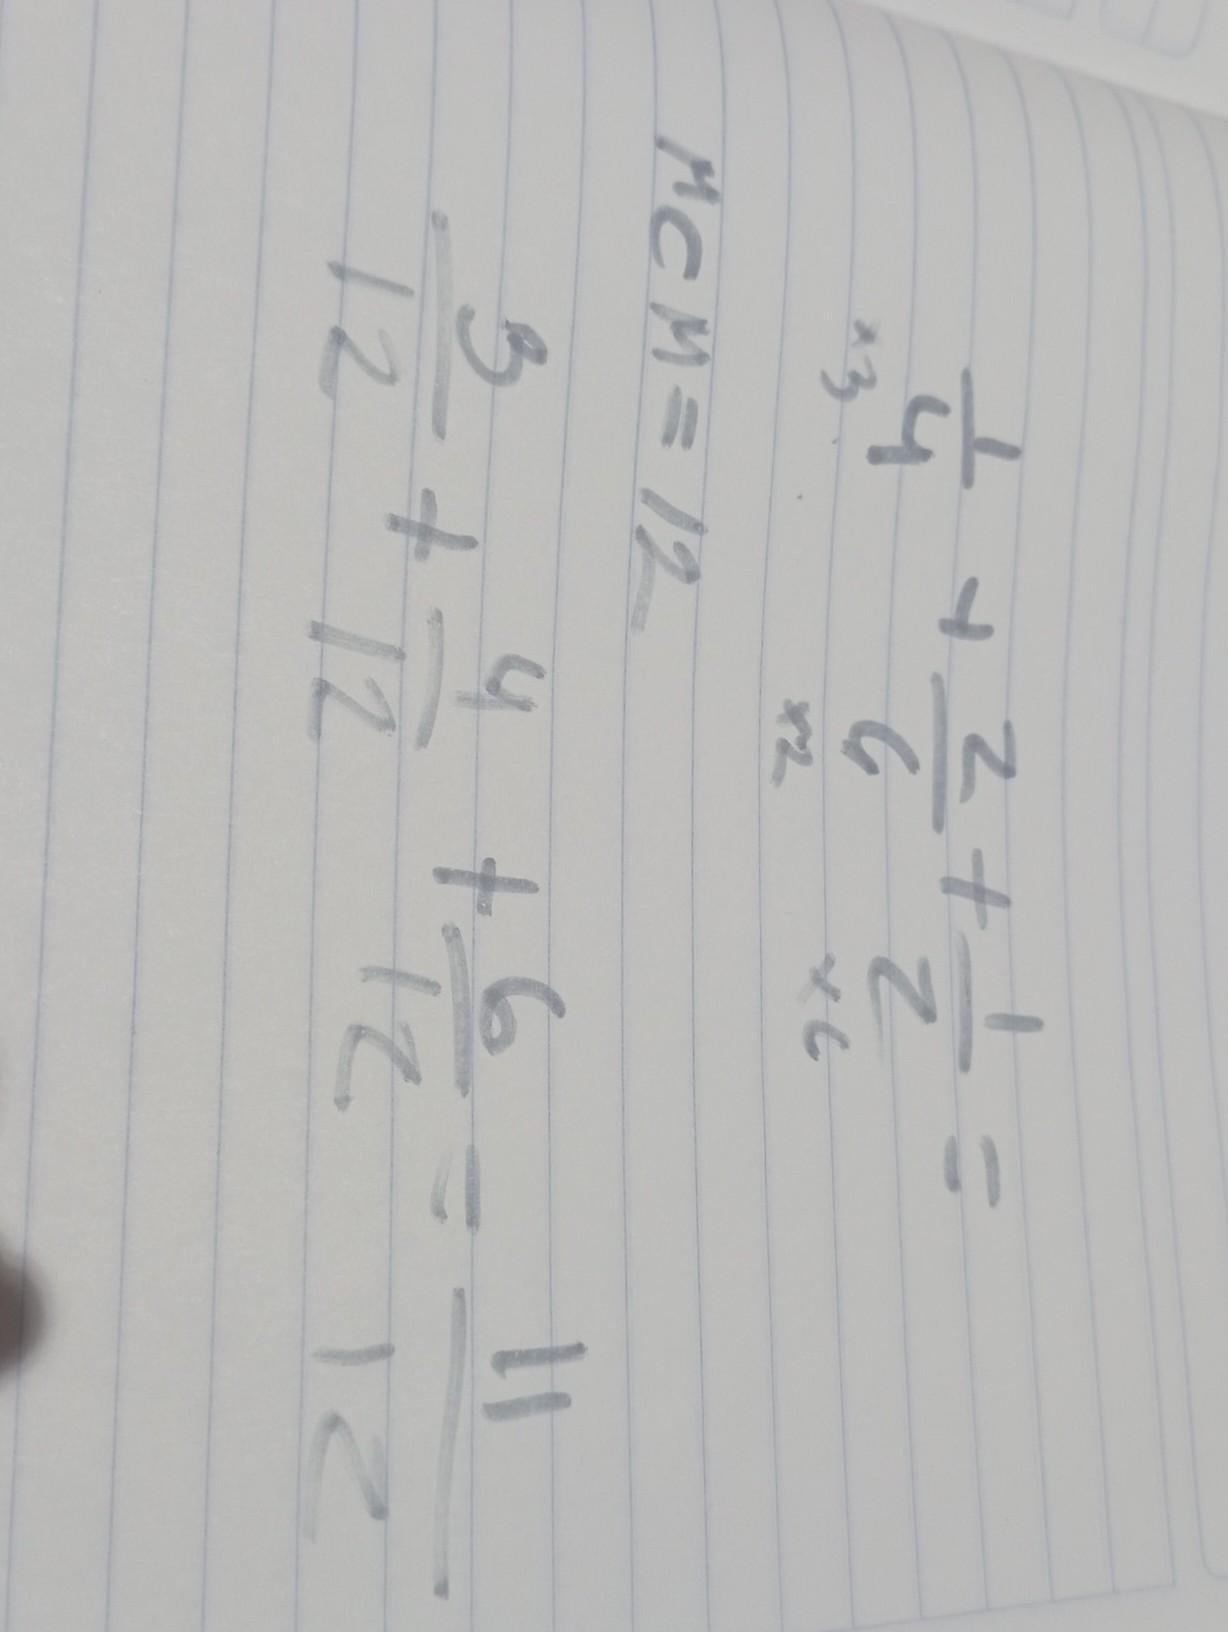 1/4 + 2/6 + 1/2 =
x3 x2 x6
MCM = 12
3/12 + 4/12 + 6/12 = 11/12